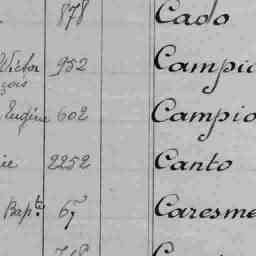 878 Cado
Victor 952 Campio
çois
Eugène 602 Campio
ie 2252 Canto
Bapte 67 Caresme